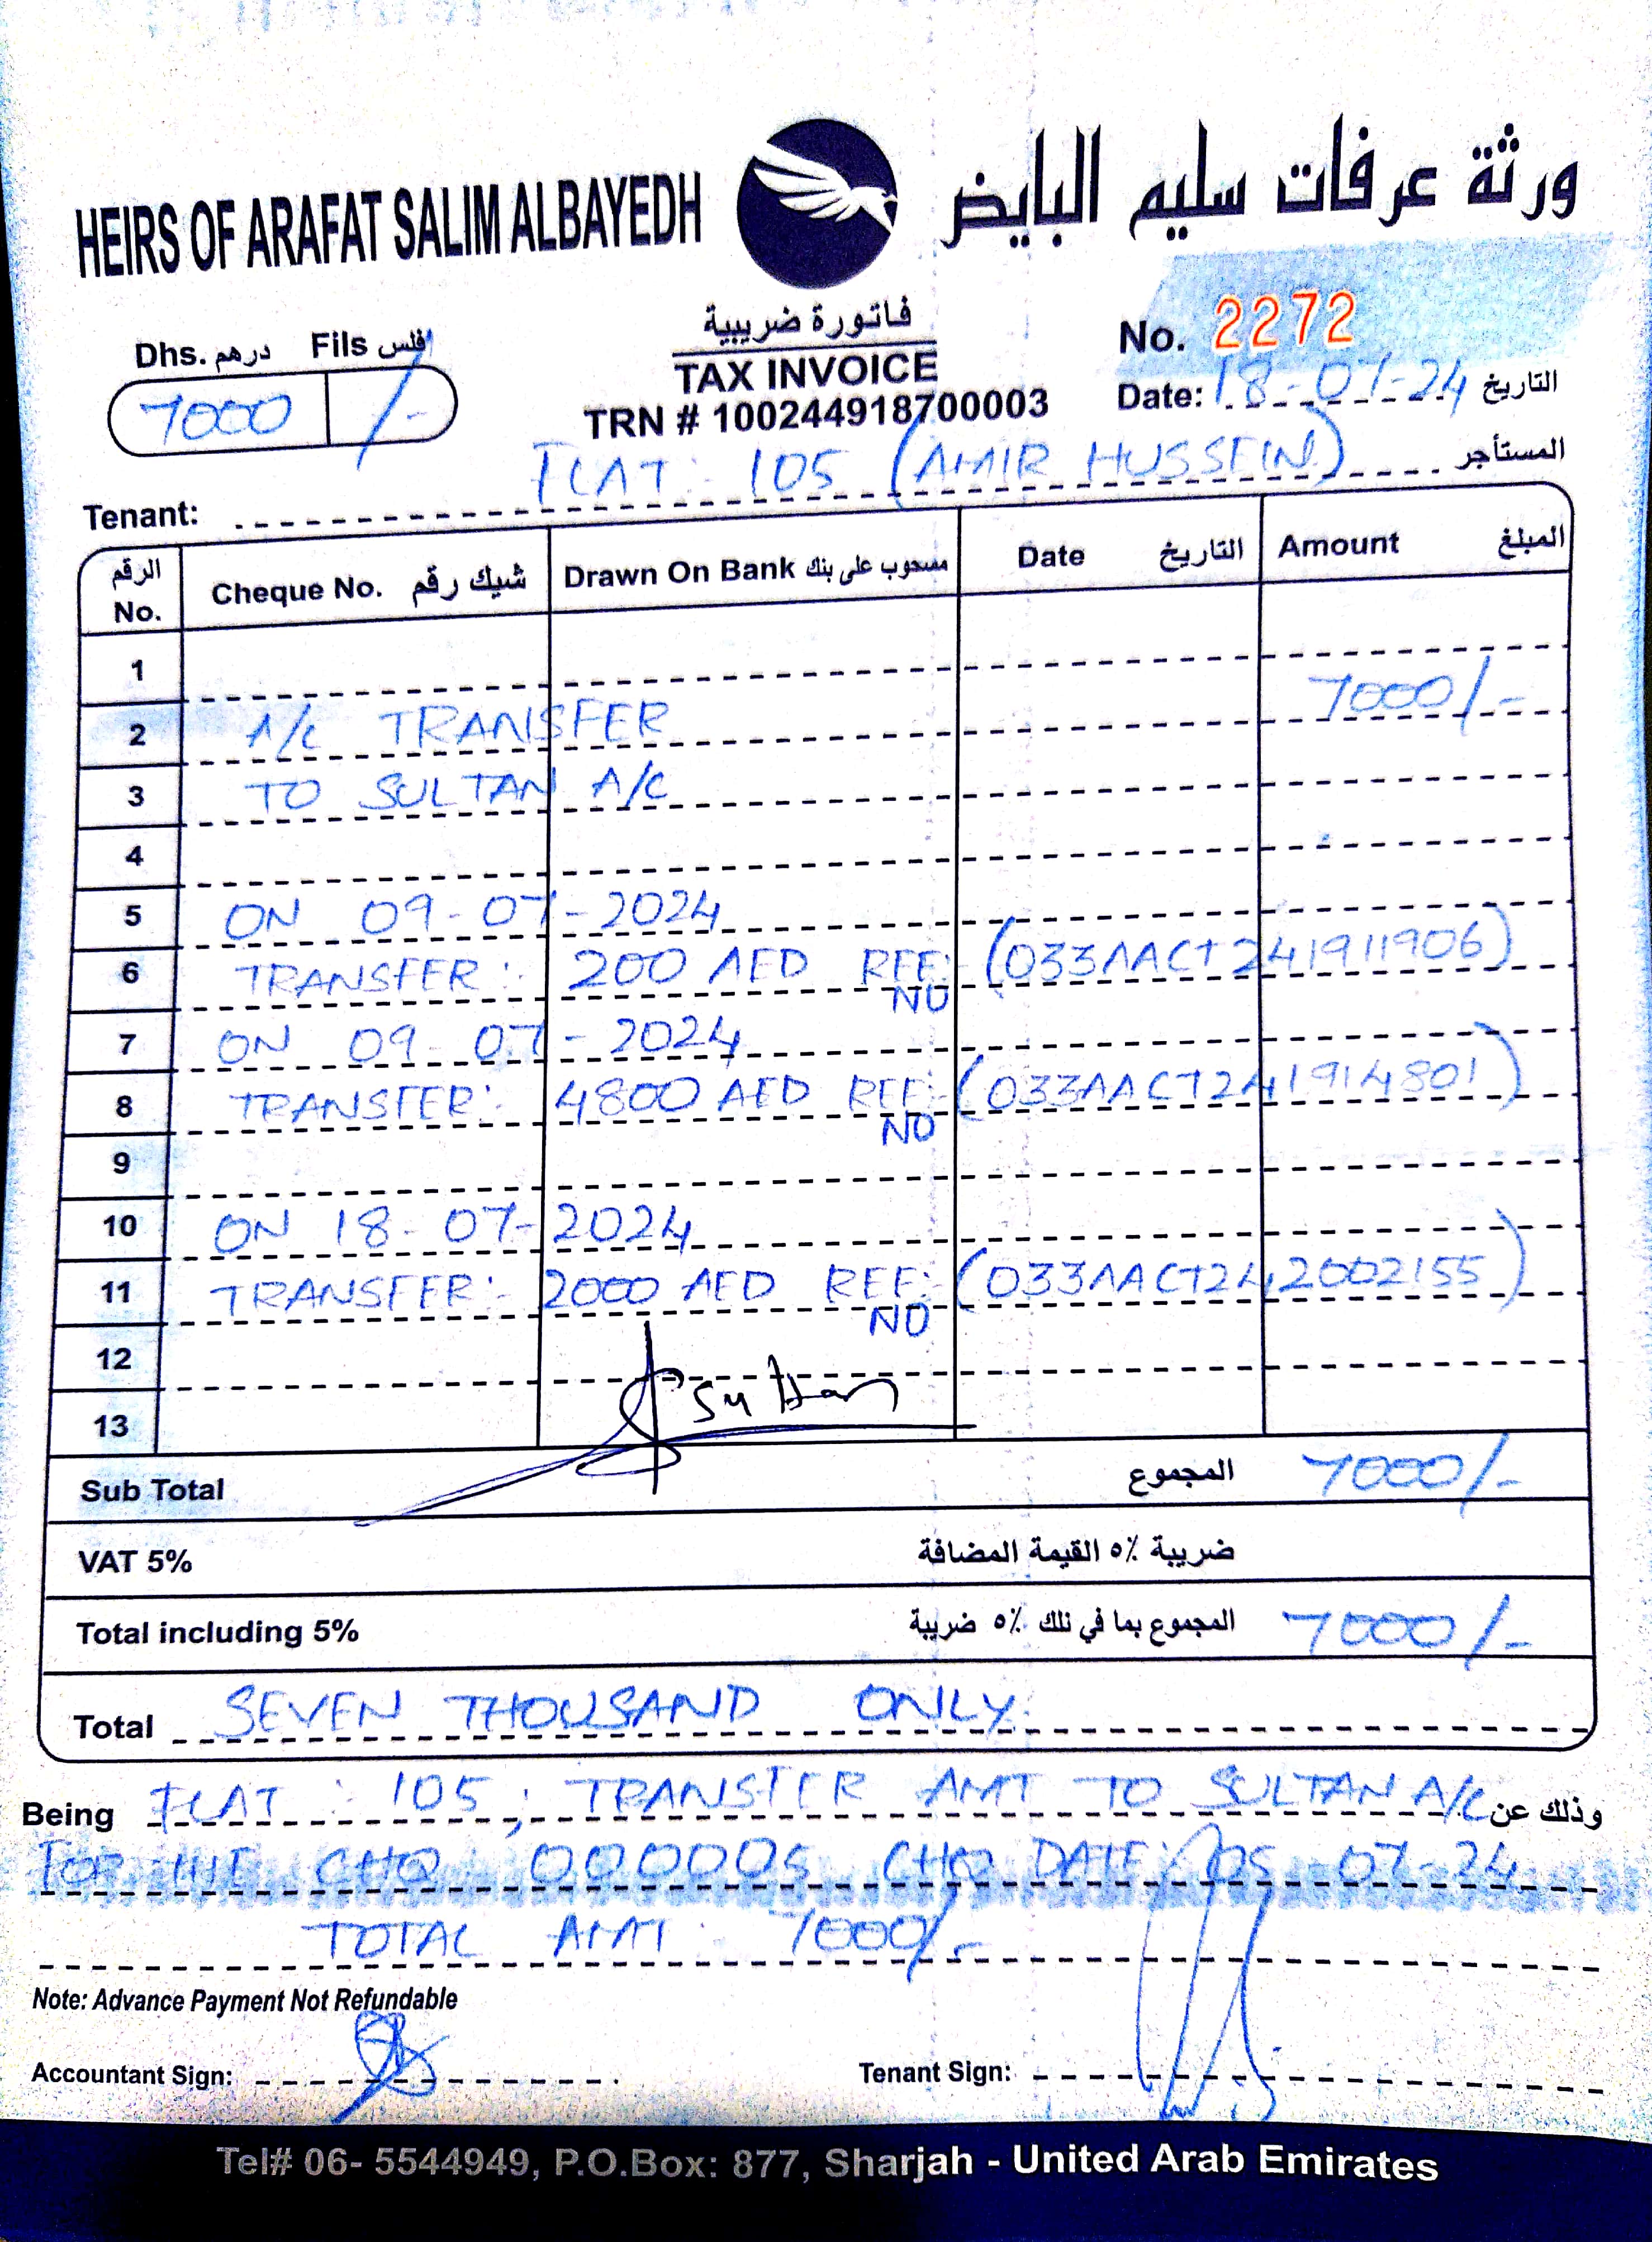 HEIRS OF ARAFAT SALIM ALBAYEDH ورثة عرفات سليم البايض
Dhs. درهم Fils فلس
7000 /-
فاتورة ضريبية
TAX INVOICE
TRN # 100244918700003
No. 2272
Date: 18-07-24 التاريخ
Tenant: FLAT: 105 (AMIR HUSSEIN) المستأجر
الرقم No. Cheque No. شيك رقم Drawn On Bank مسحوب على بنك Date التاريخ Amount المبلغ
1
2 A/C TRANSFER 7000/-
3 TO SULTAN A/C
4
5 ON 09-07-2024
6 TRANSFER:- 200 AED REF: NO (033AACT241911906)
7 ON 09-07-2024
8 TRANSFER:- 4800 AED REF:- NO (033AACT241914801)
9
10 ON 18-07-2024
11 TRANSFER:- 2000 AED REF: NO (033AACT242002155)
12
Sultan
13
Sub Total المجموع 7000/-
VAT 5% ضريبة ٥٪ القيمة المضافة
Total including 5% المجموع بما في تلك ٥٪ ضريبة 7000/-
Total SEVEN THOUSAND ONLY.
Being FLAT: 105, TRANSFER AMT TO SULTAN A/C وذلك عن
FOR THE CHQ 000005 CHQ DATE: 05-07-24
TOTAL AMT: 7000/-
Note: Advance Payment Not Refundable
Accountant Sign: Tenant Sign:
Tel# 06- 5544949, P.O.Box: 877, Sharjah - United Arab Emirates